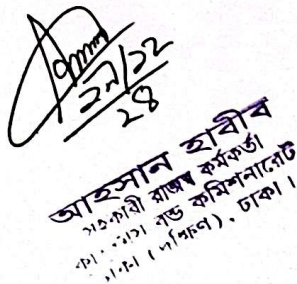 ২৯/১২
২৪
আহসান হাবীব
সহকারী রাজস্ব কর্মকর্তা
বন্ড কমিশনারেট
ঢাকা (দক্ষিণ), ঢাকা।